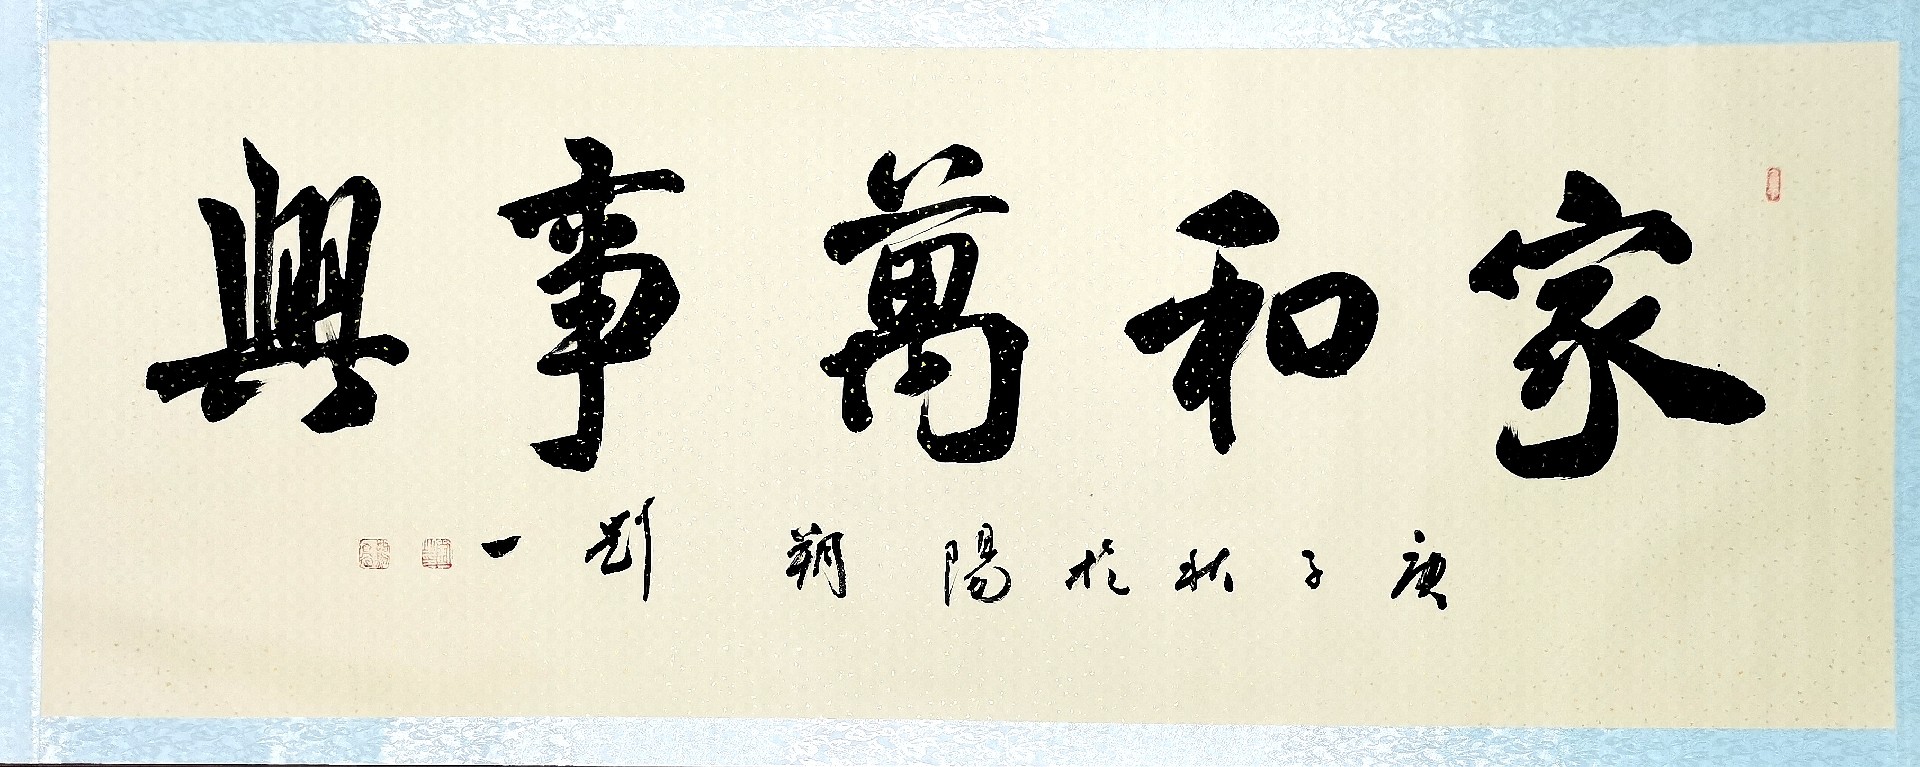 家和萬事興
庚子秋於陽朔 劉一